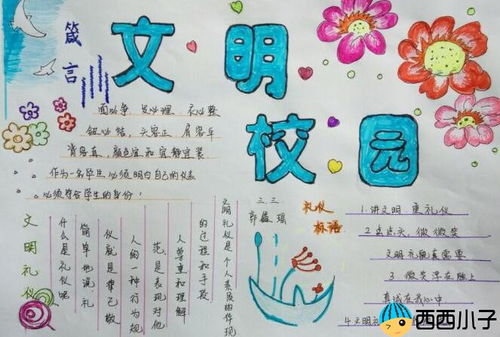 箴言
文明
校园
面必净 发必理 衣必整
钮必结,头容正 肩容平
背容直,颜色宜和宜静宜庄
作为一名学生必须明白自己的仪表
必须符合学生的身份!
文明礼仪
什么是礼仪呢
简单地说礼
仪就是律己敬
人的一种行为规
范是表现对他
人尊重和理解
的过程和手段
文明礼仪是个人素质的体现
三三
礼仪
标语
1.讲文明 重礼仪
2.点点头,微微笑
文明礼貌真需要
3.微笑浮在脸上
真诚在我心中
4.文明
西西小子